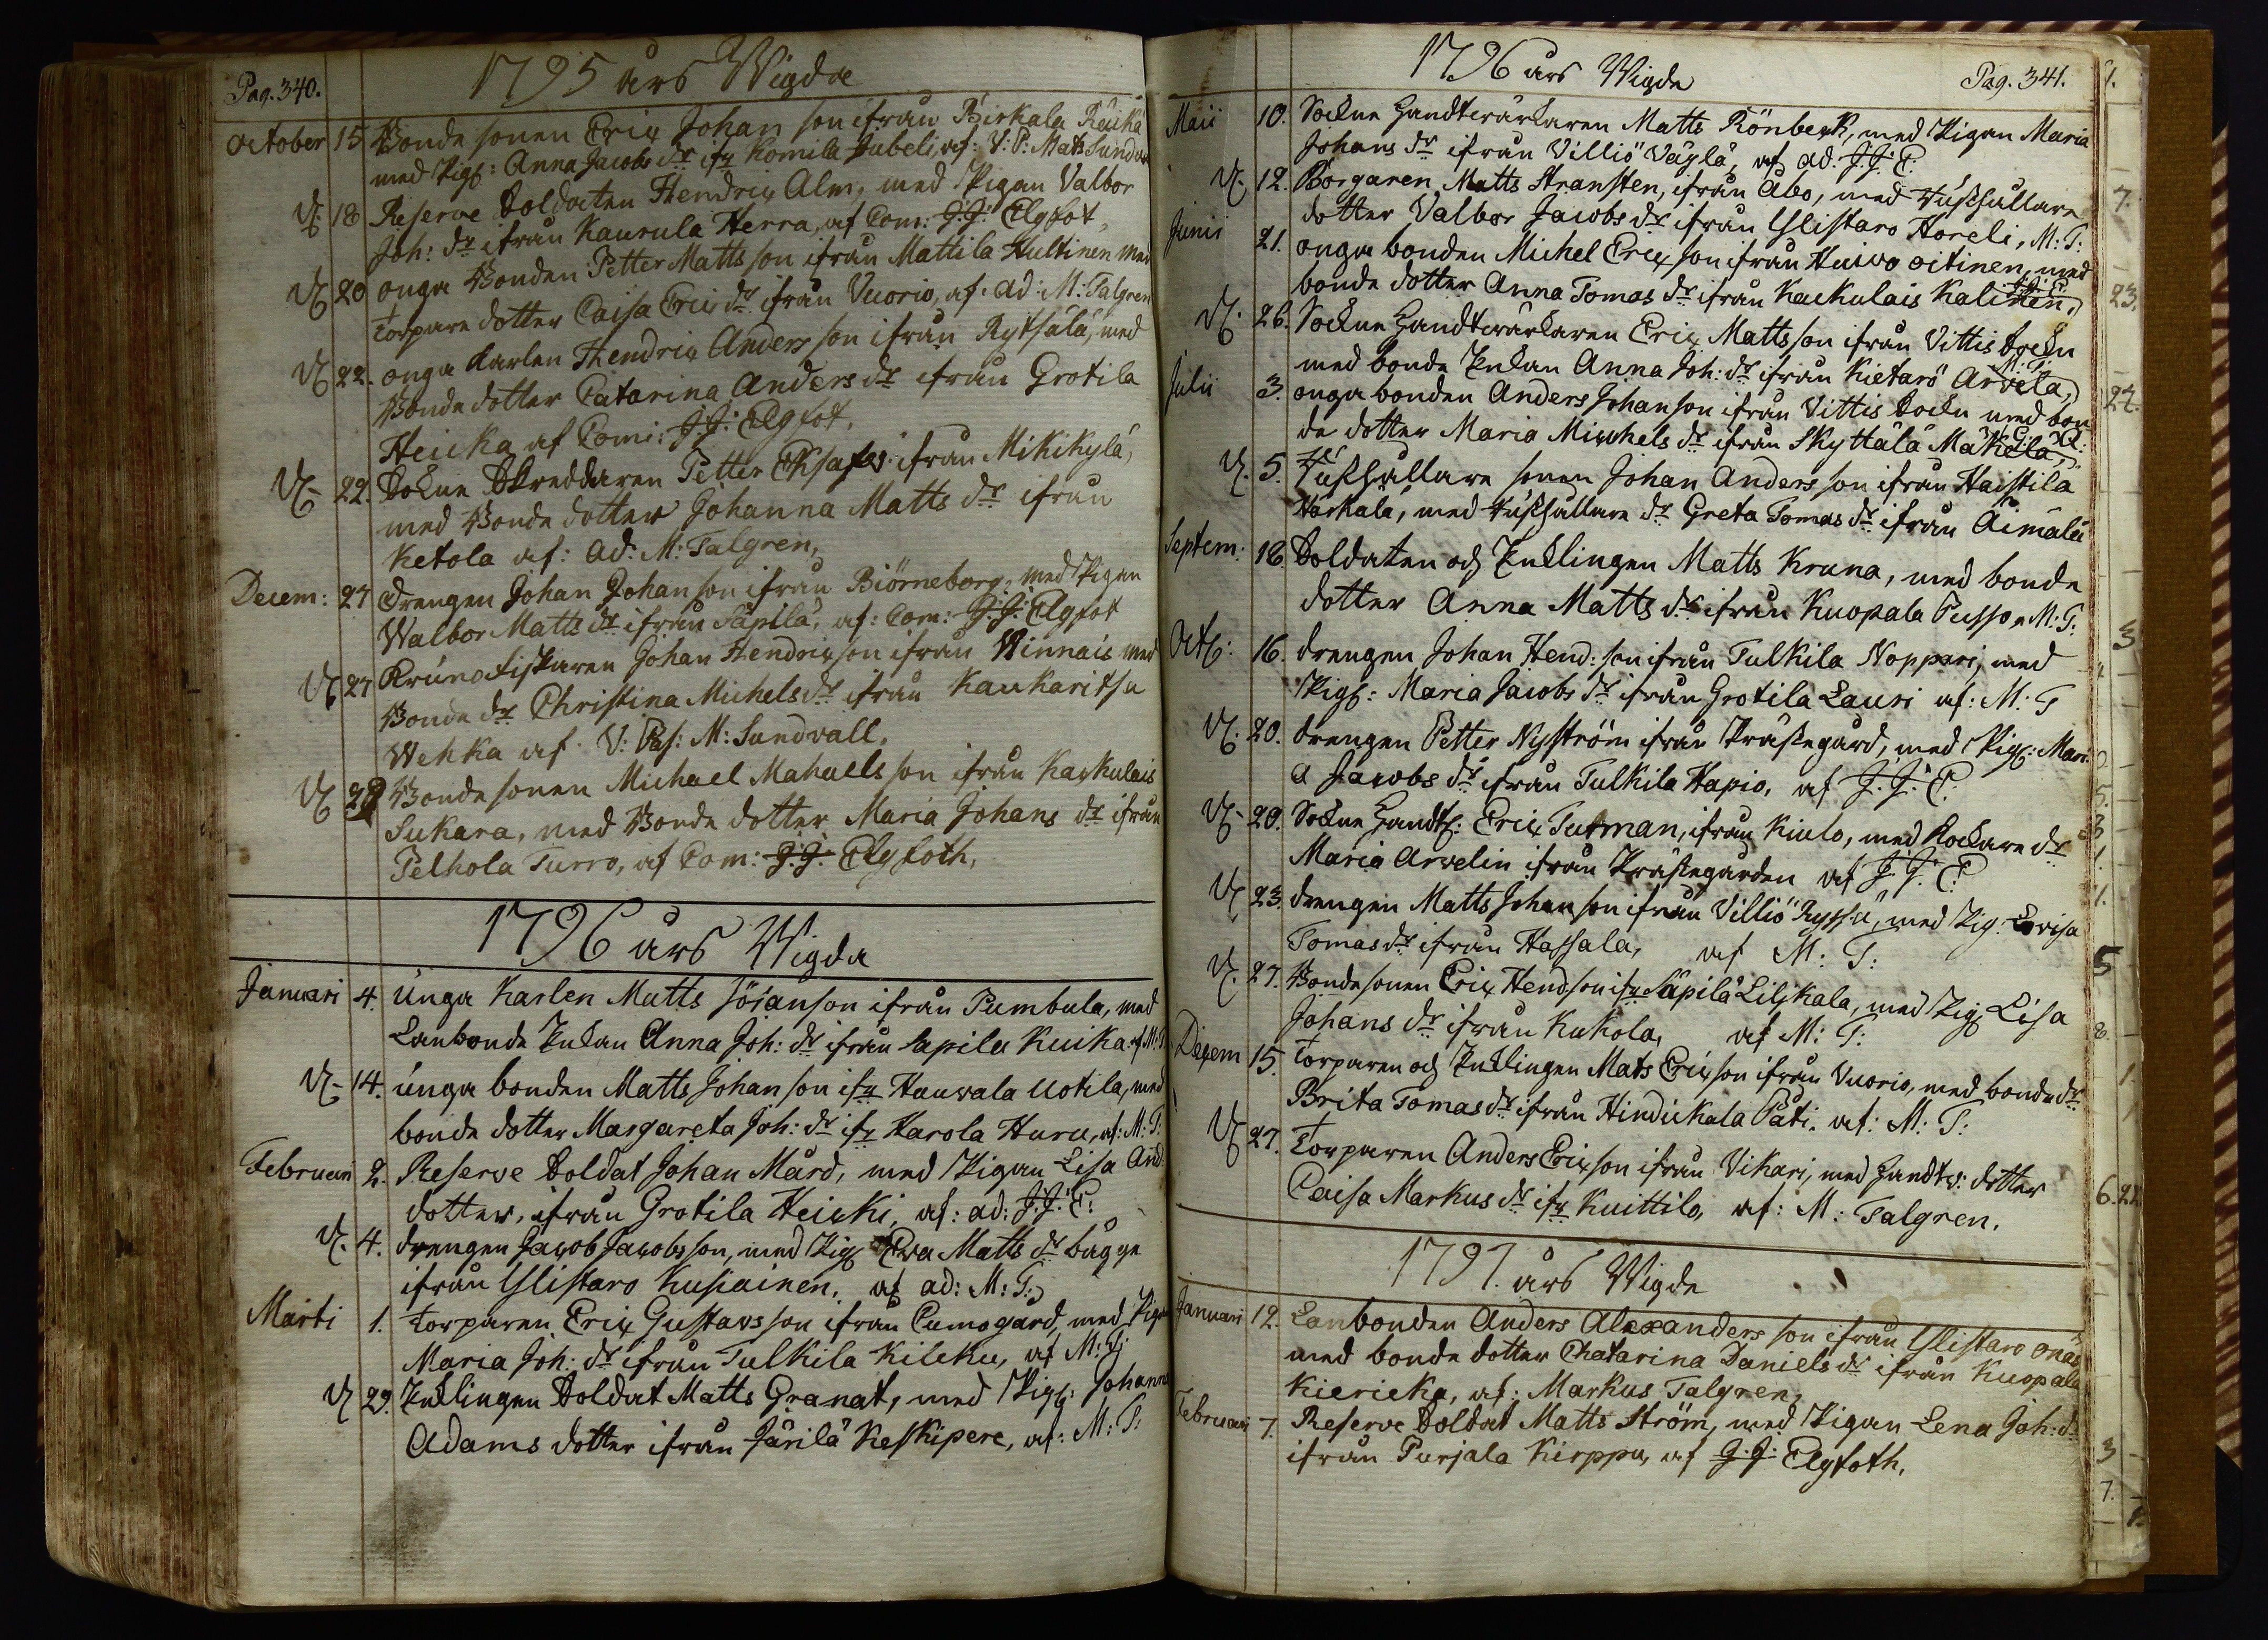 Pag. 340.
1795 års Wigda
October 15 Bonde sonen Eric Johan son ifrån Birkala Reuka
med Pig: Anna Jacobs dr ifr Komila Jubeli, af: V: P: Mats Sundva
18 Reserve Soldaten Hendric Alm, med Pigan Valbor
Joh: dr ifrån Kaurula Herra, af Com: J: J: Elgfot,
20 onga Bonden Petter Matts son ifrån Mattila Hultinen med
Torpare dotter Caisa Eric dr ifrån Vuorio, af. ad: M: Talgren
22. onga Karlen Hendric Anders son ifrån Rytsälä, med
Bonde dotter Catarina Anders dr ifrån Grotila
Heicka af Comi: J: J: Elgfot.
22. Sokne Skreddaren Petter ifrån Mikikylä,
med Bonde dotter Johanna Matts dr ifrån
Ketola af: ad: M: Talgren,
Decem: 27 Drengen Johan Johan son ifrån Biörneborg, med Pigan
Walbor Matts dr ifrån Säpilä, af: Com: J: J: Elgfot
27 Kruno fiskaren Johan Hendric son ifrån Winnais med
Bonde dr Christina Michels dr ifrån Kaukaritsa
Wehka af V: Pas: M: Sundvall.
Bonde sonen Michael Mahaels son ifrån Kaskulais
Sukara, med Bonde dotter Maria Johans dr ifrån
Pelhola Turro, af Com: J: J: Elgfoth,
1796 års Wigda
Januari 4. unga Karlen Matts Jöranson ifrån Pumbula, med
Lanbonde Enkan Anna Joh: dr ifrån Sapila Kuika af M: T
14. unga bonden Matts Johan son ifr Hauvala Uotila, med
bonde dotter Margareta Joh: dr ifr Karola Huru, af: M: T:
Februari 2. Reserve Soldat Johan Mård, med Pigan Lisa And:
dotter, ifrån Grotila Heicki, af: ad: J: J: E:
4. drengen Jacob Jacobs son, med Pig Eva Matts dr bägge
ifrån Ylistaro Kusiainen, af ad: M: T:
Marti 1. Torparen Eric Gustavs son ifrån Cumogård, med Pig
Maria Joh: dr ifrån Tulkila Kilcku, af M: T:
29. Enklingen Soldat Matts Granat, med Pig: Johanna
Adams dotter ifrån Järilä Keskipere, af: M: T:
1796 års Wigda
Pag. 341.
Maii 10. Sockne Handtwärkaren Matts Rönberk, med Pigan Maria
Johans dr ifrån Villiö Väylä, af ad. J: J: E:
12. Borgaren Matts Stransten, ifrån Åbo, med Tushållare
dotter Valbor Jacobs dr ifrån Ylistaro Horeli, M: T:
Junii 21. onga bonden Michel Eric son ifrån Huivo oitinen, med
bonde dotter Anna Tomas dr ifrån Kaukulais Kalinen, J: J: E:
26. Sockne Handtwärkaren Eric Matts son ifrån Vittis Sockn
med bonde Enkan Anna Joh: dr ifrån Kietarö Arvela, M: T:
Julii 3. onga bonden Anders Johan son ifrån Vittis Sockn med bon
de dotter Maria Michels dr ifrån Skyttälä Mäkelä,
5. Tushållare sonen Johan Anders son ifrån Haistila
Harkala, med Tushållare dr Greta Tomas dr ifrån Äimälä
Septem: 18. Soldaten och Enklingen Matts Kruna, med bonde
dotter Anna Matts dr ifrån Kuopala Pusso, M: T:
Oct: 16. drengen Johan Hend: son ifrån Tulkila Noppari, med
Pig: Maria Jacobs dr ifrån Grotila Lauri af: M: T
20. drengen Petter Nyström ifrån Prästegård, med Pig: Mari
a Jacobs dr ifrån Tulkila Hapio, af J: J: E:
20. Sockne Handt: Eric Tutman, ifrån Kiulo, med Kockare dr
Maria Arvelin ifrån Prästegården af J: J: E:
23. drengen Matts Johan son ifrån Villiö Ryssä, med Pig: Lovisa
Tomas dr ifrån Hassala, af M: T:
27. Bonde sonen Eric Hend son ifr Säpilä Liljkala, med Pig Lisa
Johans dr ifrån Kukola, af M: T:
Decem 15. Torparen och Enklingen Mats Eric son ifrån Vuorio, med bonde dr
Brita Tomas dr ifrån Hindickala Päti. af: M: T:
27. Torparen Anders Eric son ifrån Vikari, med Handtv: dotter
Caisa Markus dr ifr Kuittilo, af: M: Talgren.
1797. års Wigde
Januari 12. Lanbonden Anders Alexanders son ifrån Ylistaro onas
med bonde dotter Chatarina Daniels dr ifrån Kuopala
Kiericka, af: Markus Talgren,
Februari 7. Reserve Soldat Matts Ström, med Pigan Lena Joh: dr
ifrån Purjala Kirppu, af J: J: Elgfoth,